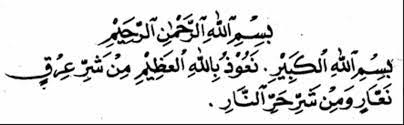 بِسْمِ اللهِ الرَّحْمٰنِ الرَّحِيْمِ
بِسْمِ اللهِ الْكَبِيْرِ . نَعُوْذُ بِاللهِ الْعَظِيْمِ مِنْ شَرِّ عِرْقٍ
نَعَّارٍ وَمِنْ شَرِّ حَرِّ النَّارِ .